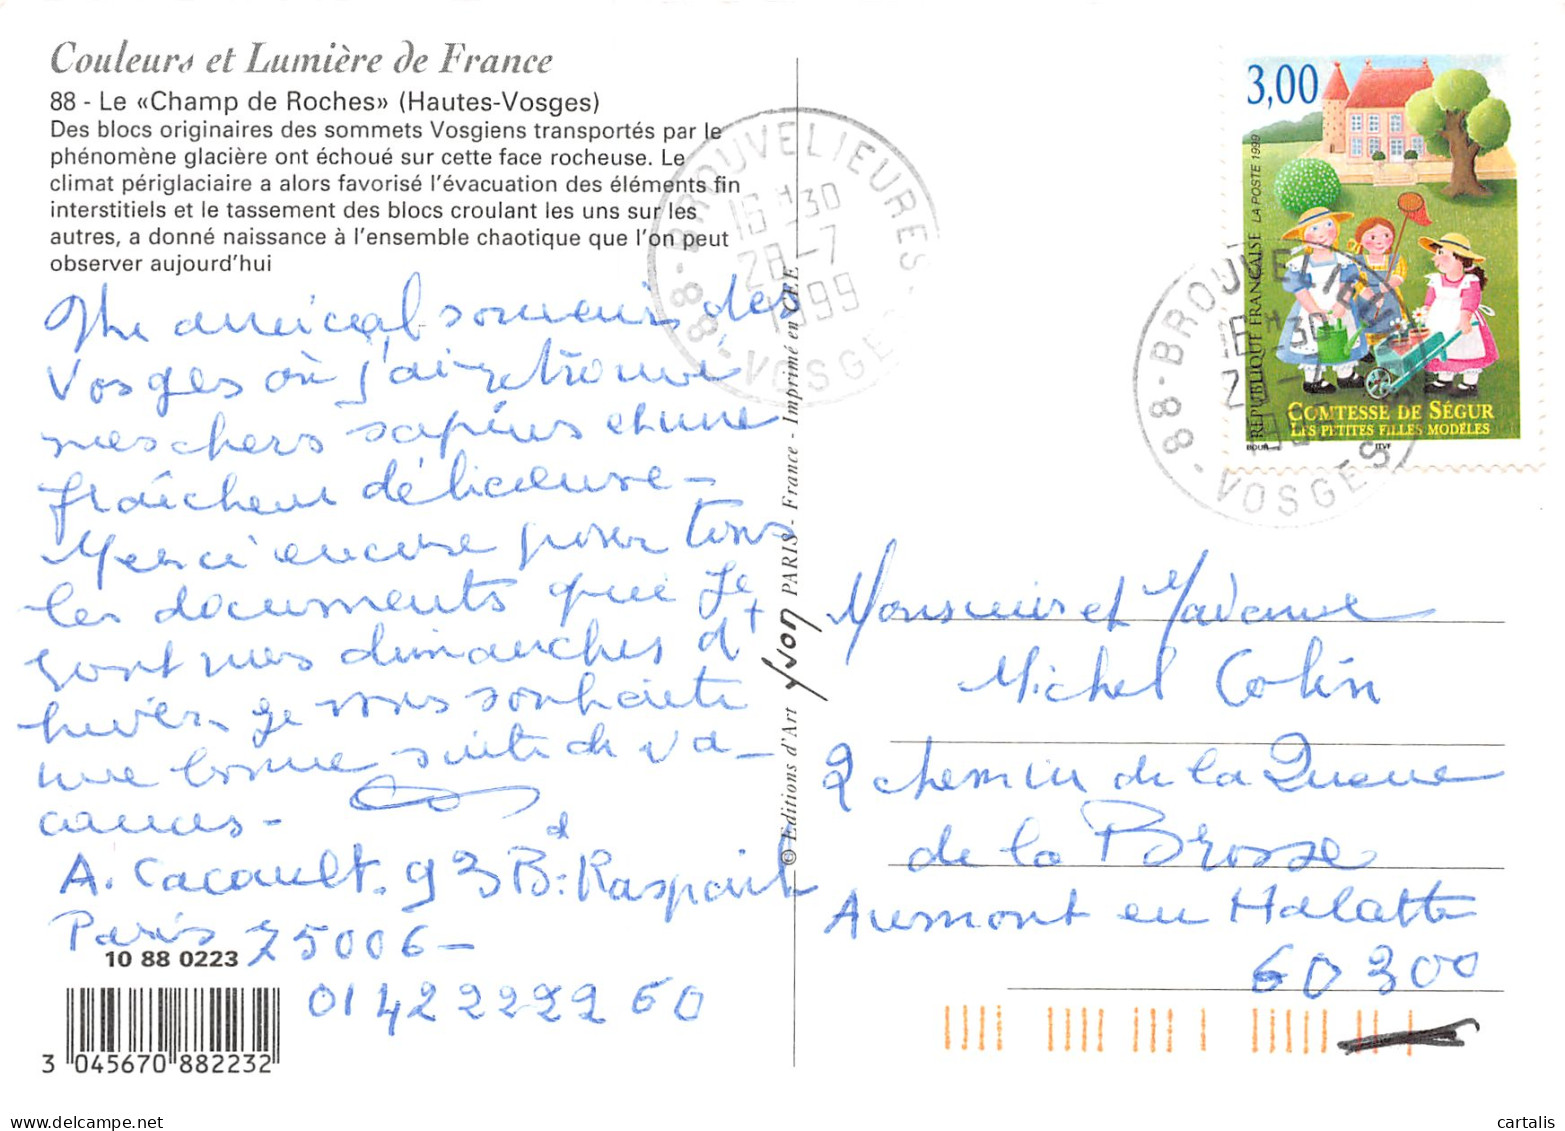 Couleurs et Lumière de France
88 - Le «Champ de Roches» (Hautes-Vosges)
Des blocs originaires des sommets Vosgiens transportés par le
phénomène glacière ont échoué sur cette face rocheuse. Le
climat périglaciaire a alors favorisé l'évacuation des éléments fin
interstitiels et le tassement des blocs croulant les uns sur les
autres, a donné naissance à l'ensemble chaotique que l'on peut
observer aujourd'hui
Un amical souvenir des
Vosges où j'ai retrouvé
mes chers sapins et une
fraîcheur délicieuse -
Merci encore pour tous
les documents qui
sont mes dimanches d'
hiver. Je vous souhaite
une bonne suite de va-
cances -
A. Cacault. 93 Bd: Raspail
Paris 75006 -
01 42 22 22 60
10 88 0223
3 045670 882232
© Editions d'Art yvon PARIS - France - Imprimé en CEE
88 - BROUVELIEURES - VOSGES
16 H 30
28 - 7
1999
3,00
RÉPUBLIQUE FRANÇAISE LA POSTE 1999
COMTESSE DE SÉGUR
LES PETITES FILLES MODÈLES
ITVF
88 - BROUVELIEURES - VOSGES
16 H 30
Monsieur et Madame
Michel Colin
2 chemin de la Queue
de la Brosse
Aumont en Halatte
60300
cartalis